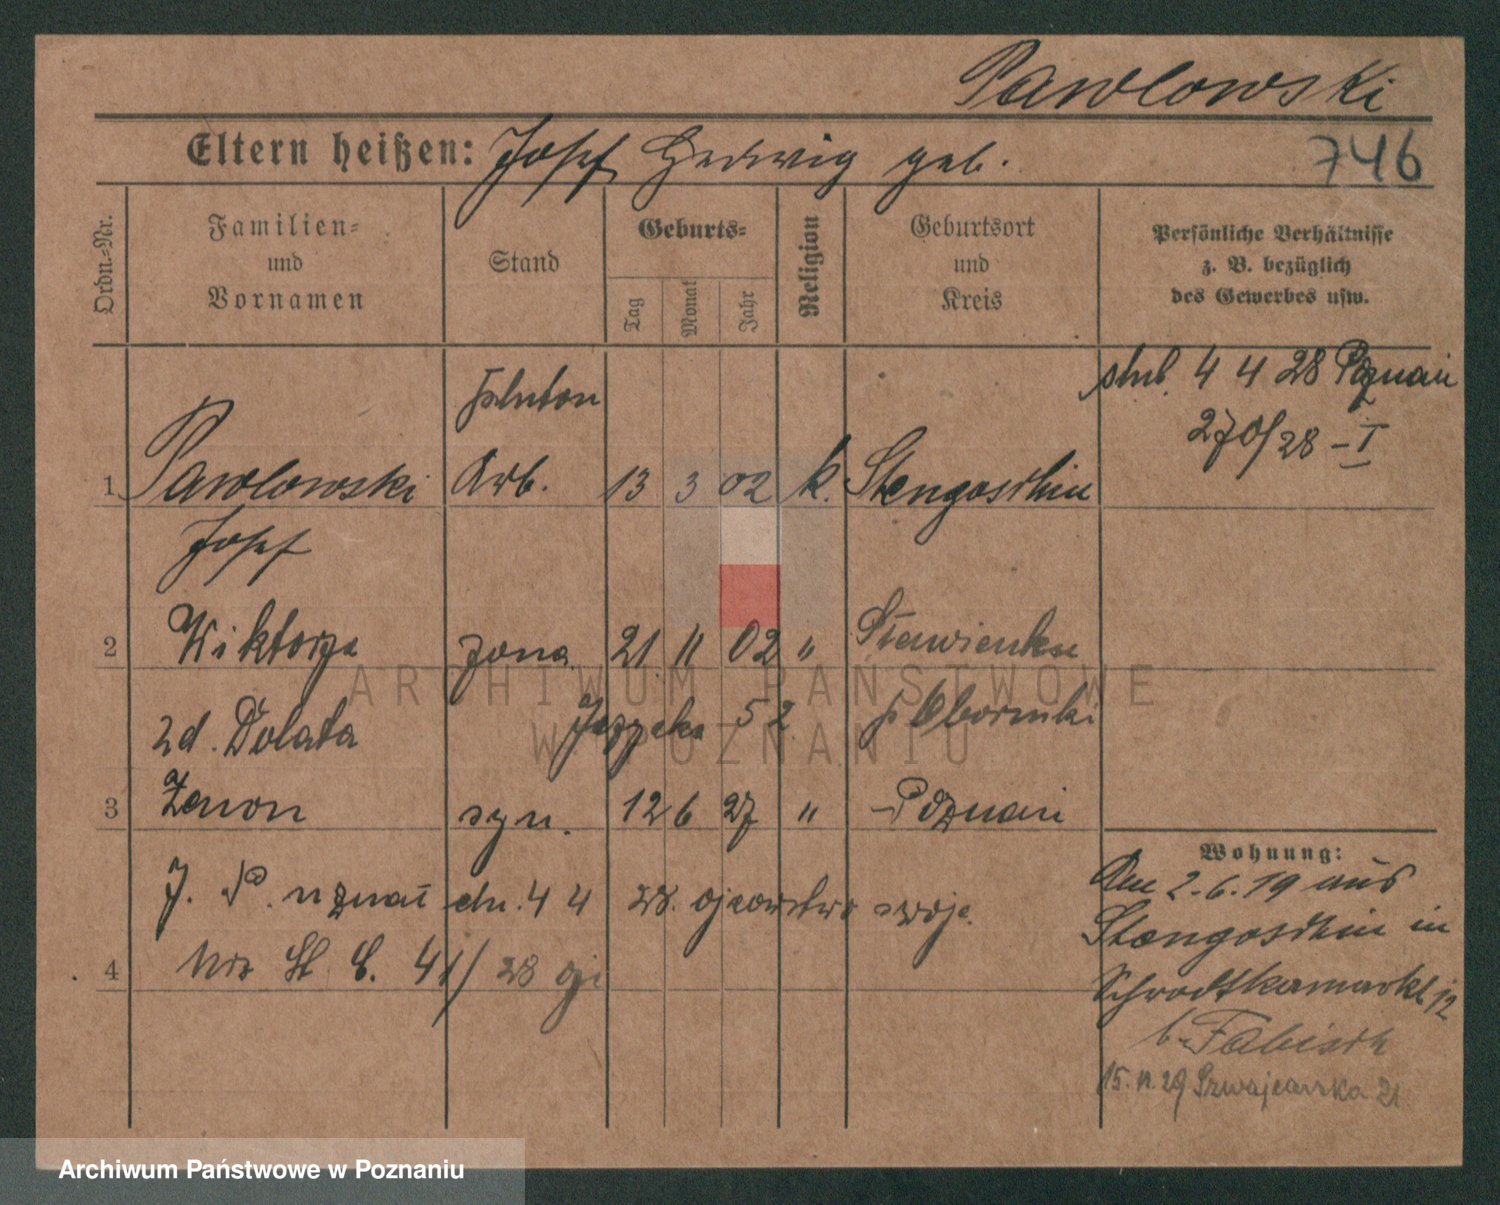 Pawlowski
Eltern heißen: Josef Hedwig geb.
746
Ordn.-Nr.
Familien- und Vornamen
Stand
Geburts-
Tag
Monat
Jahr
Religion
Geburtsort und Kreis
Persönliche Verhältnisse z. B. bezüglich des Gewerbes usw.
ślub 4 4 28 Poznań
270/28 - I
1 Pawlowski Arb. 13 3 02 k. Stengoschin
Josef
2 Wiktorja żona 21 11 02 " Stawienku
zd. Dolata 52 p Obornicki
3 Zenon syn. 12 6 27 " Poznań
J. P. uznał dn. 4 4 28. ojcowstwo swoje.
4 41/28
Wohnung:
Am 2.6.19 aus
Stengoschin in
Schrodtkamarkt 12
b. Fabisch
29 Szwajcarska 21
ARCHIWUM PAŃSTWOWE
W POZNANIU
Archiwum Państwowe w Poznaniu